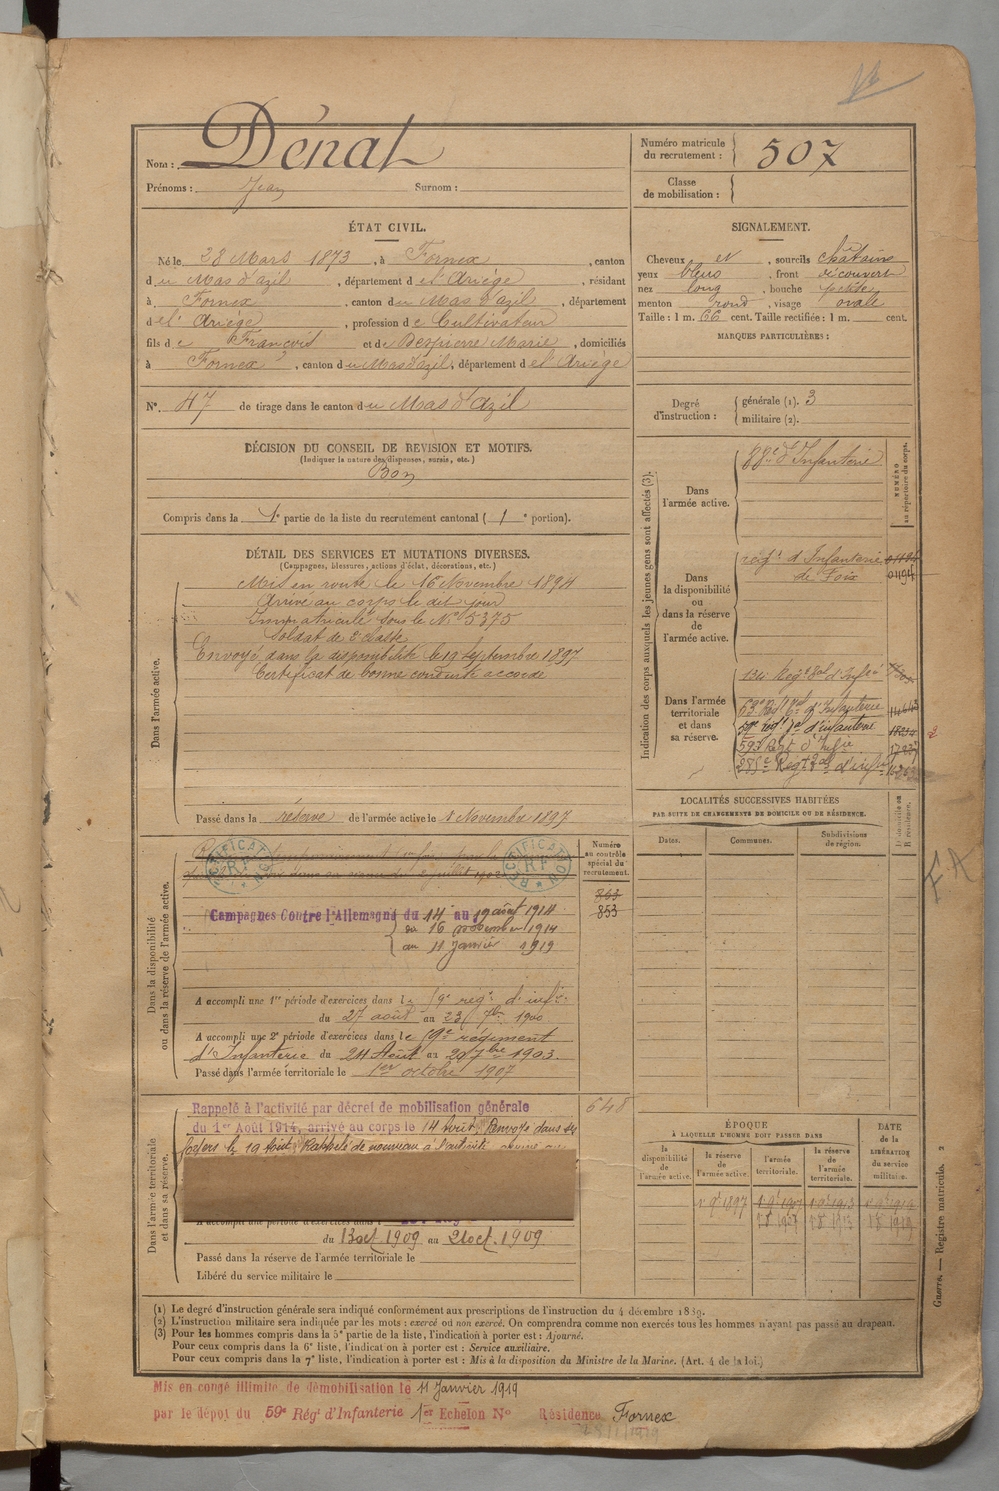 Nom : Dénat
Prénoms : Jean Surnom :
Numéro matricule du recrutement : 507
Classe de mobilisation :
ÉTAT CIVIL.
Né le 28 Mars 1873, à Fornex, canton
du Mas d'azil, département de l'Ariège, résidant
à Fornex, canton du Mas d'azil, département
de l'Ariège, profession de Cultivateur
fils de François et de Despierre Marie, domiciliés
à Fornex, canton du Mas d'azil, département de l'Ariège
N° 47 de tirage dans le canton du Mas d'azil
SIGNALEMENT.
Cheveux et, sourcils châtains
yeux bleus, front découvert
nez long, bouche petite
menton rond, visage ovale
Taille : 1 m. 66 cent. Taille rectifiée : 1 m. cent.
MARQUES PARTICULIÈRES :
Degré d'instruction : générale (1). 3
militaire (2).
DÉCISION DU CONSEIL DE REVISION ET MOTIFS.
(Indiquer la nature des dispenses, sursis, etc.)
Bon
Compris dans la 1e partie de la liste du recrutement cantonal (1e portion).
DÉTAIL DES SERVICES ET MUTATIONS DIVERSES.
(Campagnes, blessures, actions d'éclat, décorations, etc.)
Dans l'armée active.
Mis en route le 16 Novembre 1894
Arrivé au corps le dit jour
Immatriculé sous le N° 5375
Soldat de 2e classe
Envoyé dans la disponibilité le 19 Septembre 1897
Certificat de bonne conduite accordé
Passé dans la réserve de l'armée active le 1 Novembre 1897
Indication des corps auxquels les jeunes gens sont affectés (3).
NUMÉRO au répertoire du corps.
Dans l'armée active.
88e d'Infanterie
Dans la disponibilité ou dans la réserve de l'armée active.
régt d'Infanterie
de Foix
01194
Dans l'armée territoriale et dans sa réserve.
134e Regt Tal d'Infie
59e Regt d'Infie
LOCALITÉS SUCCESSIVES HABITÉES
PAR SUITE DE CHANGEMENTS DE DOMICILE OU DE RÉSIDENCE.
Dates. Communes. Subdivisions de région. D. domicile ou R. résidence.
Dans la disponibilité ou dans la réserve de l'armée active.
RECTIFICATION RF
RECTIFICATION RF
Numéro au contrôle spécial du recrutement.
863
853
Campagnes Contre l'Allemagne du 14 au 19 août 1914
du 16 novembre 1914
au 11 Janvier 1919
A accompli une 1re période d'exercices dans le 59e régt d'infie
du 27 août au 23 7bre 1900
A accompli une 2e période d'exercices dans le 59e régiment
d'Infanterie du 24 Août au 20 7bre 1903.
Passé dans l'armée territoriale le 1er octobre 1907
Dans l'armée territoriale et dans sa réserve.
Rappelé à l'activité par décret de mobilisation générale
du 1er Août 1914, arrivé au corps le 14 Août. Renvoyé dans ses
foyers le 19 Août. Rappelé de nouveau à l'activité
648
A accompli une période d'exercices dans l
du 13 oct. 1909 au 21 oct. 1909
Passé dans la réserve de l'armée territoriale le
Libéré du service militaire le
ÉPOQUE
À LAQUELLE L'HOMME DOIT PASSER DANS
la disponibilité de l'armée active. la réserve de l'armée active. l'armée territoriale. la réserve de l'armée territoriale.
DATE de la LIBÉRATION du service militaire.
Guerre. — Registre matricule. 2
(1) Le degré d'instruction générale sera indiqué conformément aux prescriptions de l'instruction du 4 décembre 1889.
(2) L'instruction militaire sera indiquée par les mots : exercé ou non exercé. On comprendra comme non exercés tous les hommes n'ayant pas passé au drapeau.
(3) Pour les hommes compris dans la 5e partie de la liste, l'indication à porter est : Ajourné.
Pour ceux compris dans la 6e liste, l'indication à porter est : Service auxiliaire.
Pour ceux compris dans la 7e liste, l'indication à porter est : Mis à la disposition du Ministre de la Marine. (Art. 4 de la loi.)
Mis en congé illimité de démobilisation le 11 Janvier 1919
par le dépôt du 59e Régt d'Infanterie 1er Echelon N° Résidence Fornex